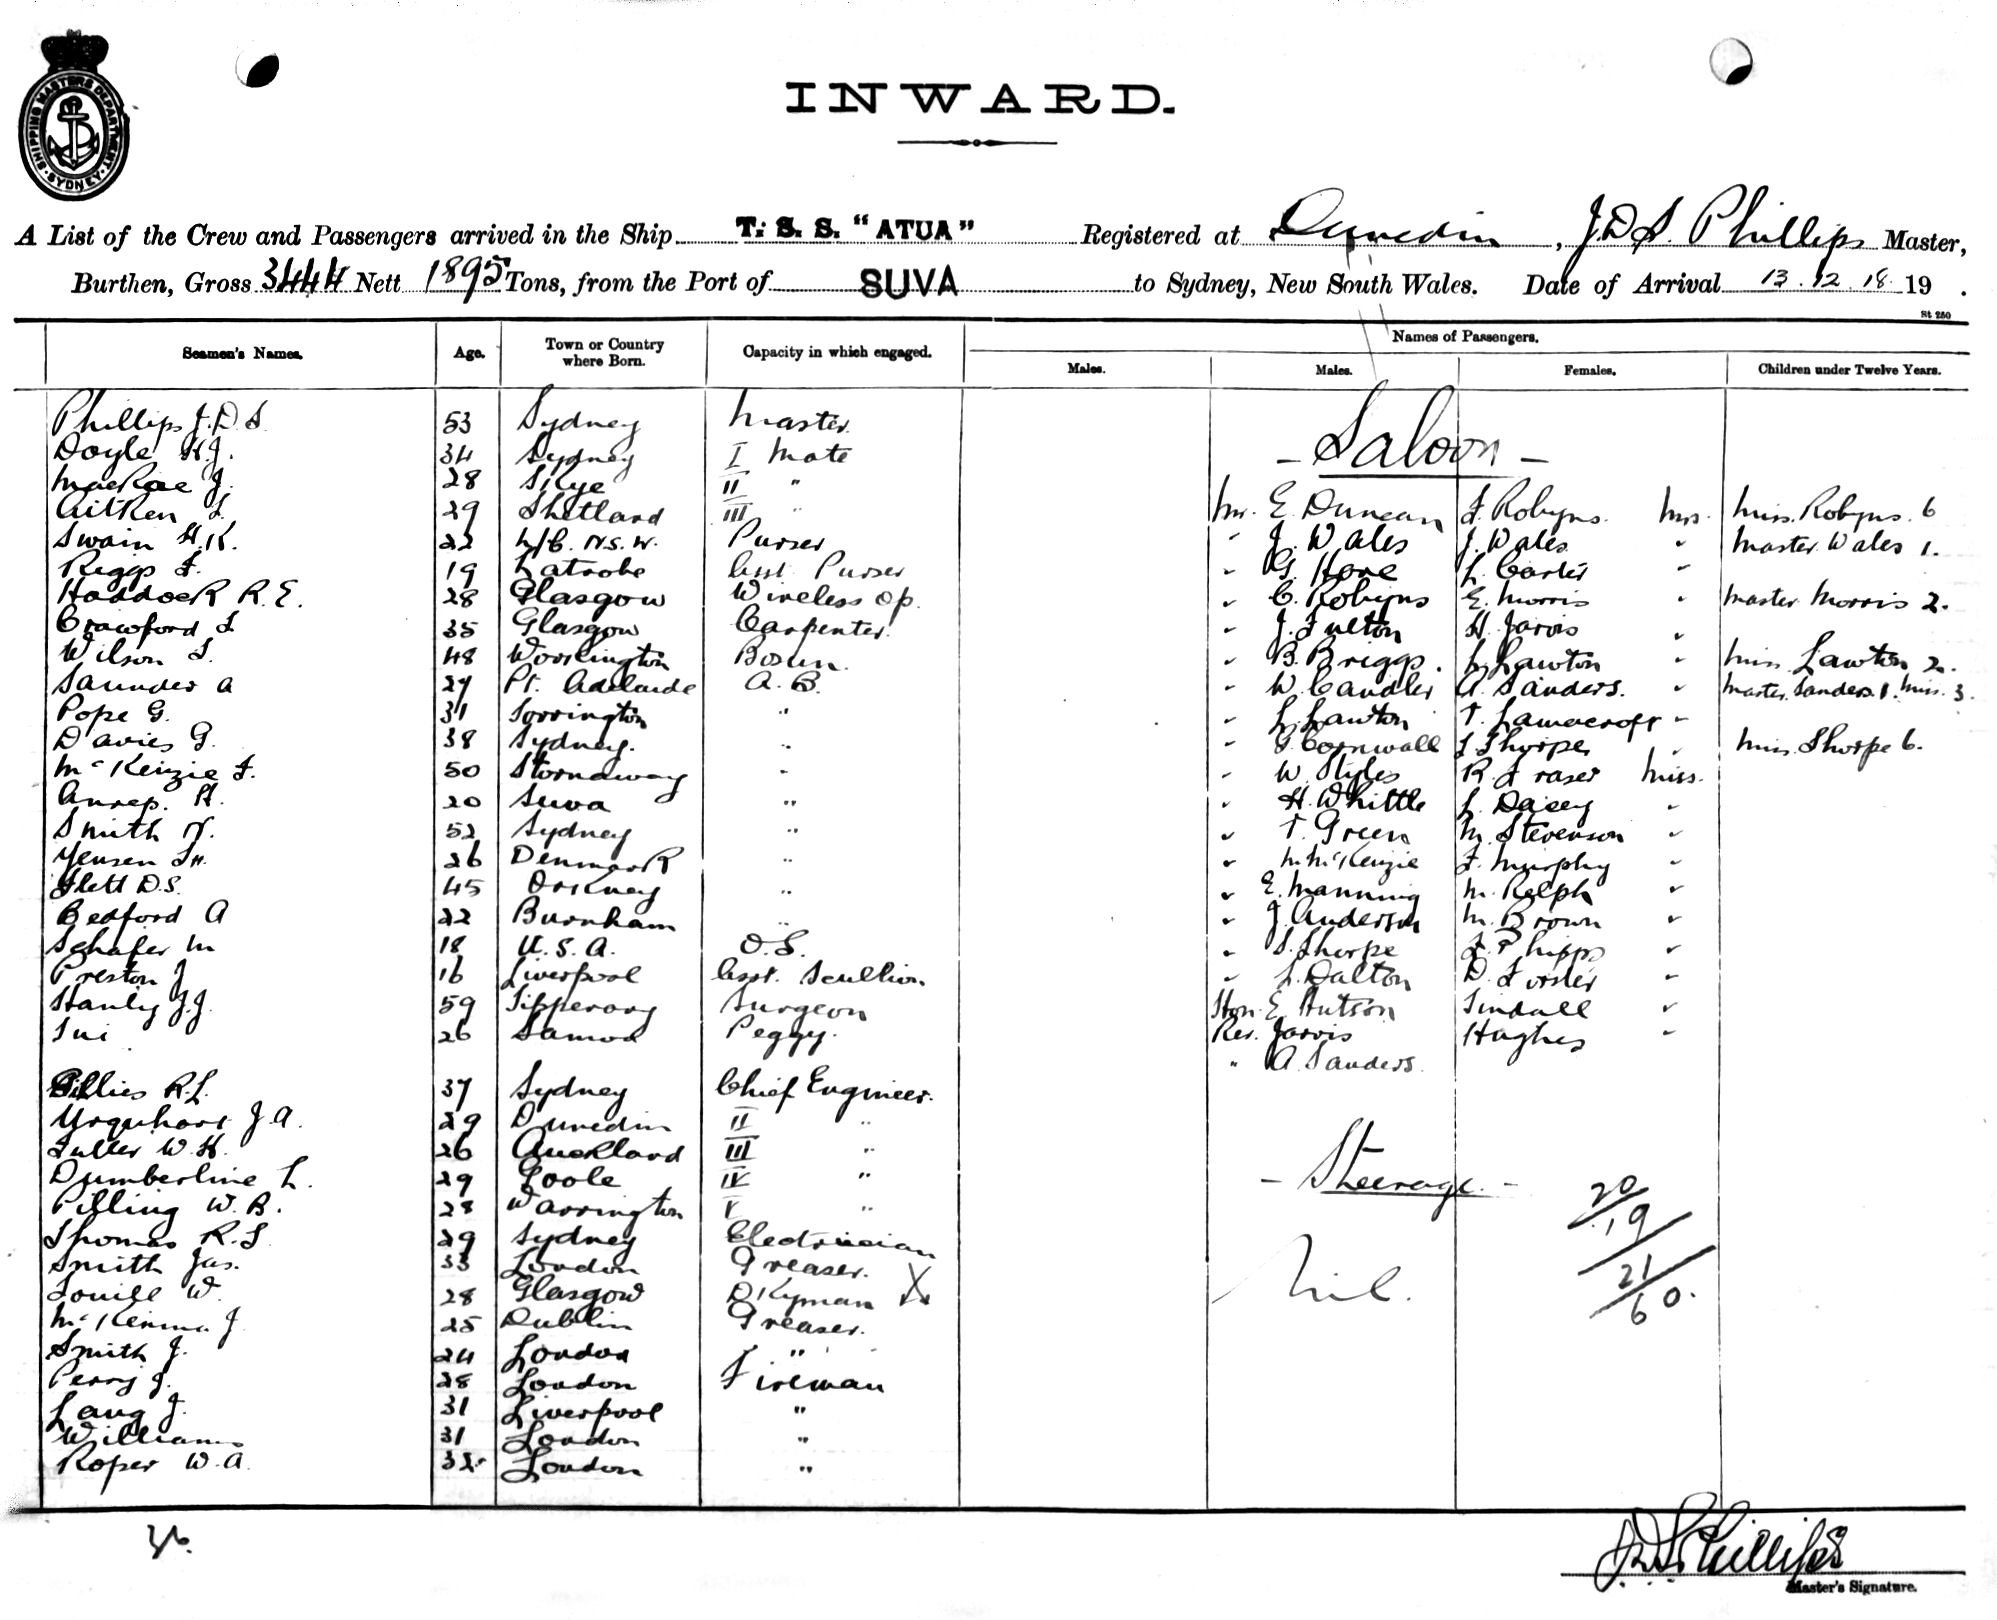 SHIPPING MASTERS DEPARTMENT · SYDNEY ·
INWARD.
A List of the Crew and Passengers arrived in the Ship T.S.S. "ATUA" Registered at Dunedin, J.D.S. Phillips Master,
Burthen, Gross 3444 Nett 1895 Tons, from the Port of SUVA to Sydney, New South Wales. Date of Arrival 13.12.18 19 .
St 250
Seamen's Names. Age. Town or Country where Born. Capacity in which engaged. Names of Passengers.
Males. Males. Females. Children under Twelve Years.
Phillips J.D.S. 53 Sydney Master.
Doyle H.J. 34 Sydney I Mate
MacRae J. 28 Skye II "
Aitken 29 Shetland III "
Swain H.K. 22 N.S.W. Purser
Riggs F. 19 Latrobe Asst. Purser
Haddock R.E. 28 Glasgow Wireless Op.
Crawford 35 Glasgow Carpenter.
Wilson 48 Workington Bosun.
Saunder A 27 Pt. Adelaide A.B.
Pope G. 31 Torrington "
Davies G. 38 Sydney. "
McKenzie F. 50 Stornaway "
H. 20 Suva "
Smith N. 52 Sydney "
Yensen 26 Denmark "
Flett D.S. 45 Orkney "
Bedford A 22 Burnham "
Schafer M 18 U.S.A. O.S.
Preston J 16 Liverpool Asst. Scullion.
Hanly J.J. 59 Tipperary Surgeon
Tui 26 Samoa Peggy.
Gillies R.L. 37 Sydney Chief Engineer.
Urquhart J.A. 29 Dunedin II "
Fuller W.H. 26 Auckland III "
Dumberline L. 29 Goole IV "
Pilling W.B. 28 Warrington V "
Thomas R.S 29 Sydney Electrician
Smith Jas. 33 London Greaser.
W. 28 Glasgow D'Kyman X
McKenna J 25 Dublin Greaser.
Smith J. 24 London "
Perry J. 28 London Fireman
Lang J. 31 Liverpool "
Williams 31 London "
Roper W.A. 32 London "
36.
- Saloon -
Mr. E. Duncan F. Robyns. Mrs. Miss. Robyns. 6
" J. Wales J. Wales " Master Wales 1.
" G. Hore L. Carter "
" C. Robyns E. Morris " Master Morris 2.
" J. Fulton H. Jarvis "
" B. Briggs. L. Lawton " Miss Lawton 2.
" W. Candler A. Sanders. " Master. Sanders. 1. Miss. 3.
" L. Lawton T. Lamacroft "
" G. Cornwall Thorpe " Miss. Thorpe 6.
" W. Styles R. Fraser Miss.
" H. Whittle L. Dacey "
" T. Green M. Stevenson "
" M. McKenzie F. Murphy "
" E. Manning M. Relph "
" J. Anderson M. Brown "
" S. Thorpe Phipps "
" L. Dalton D. Forster "
Hon. E Hutson Tindall "
Rev. Jarvis Hughes "
" A. Sanders.
- Steerage. -
Nil.
20
19
21
60.
J.D.S. Phillips
Master's Signature.